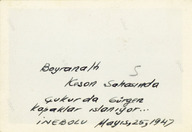 Beyranaltı 5
Keson Sahasında
Çukurda Gürgen
Kapaklar ıslanıyor...
İNEBOLU Mayıs, 25, 1947